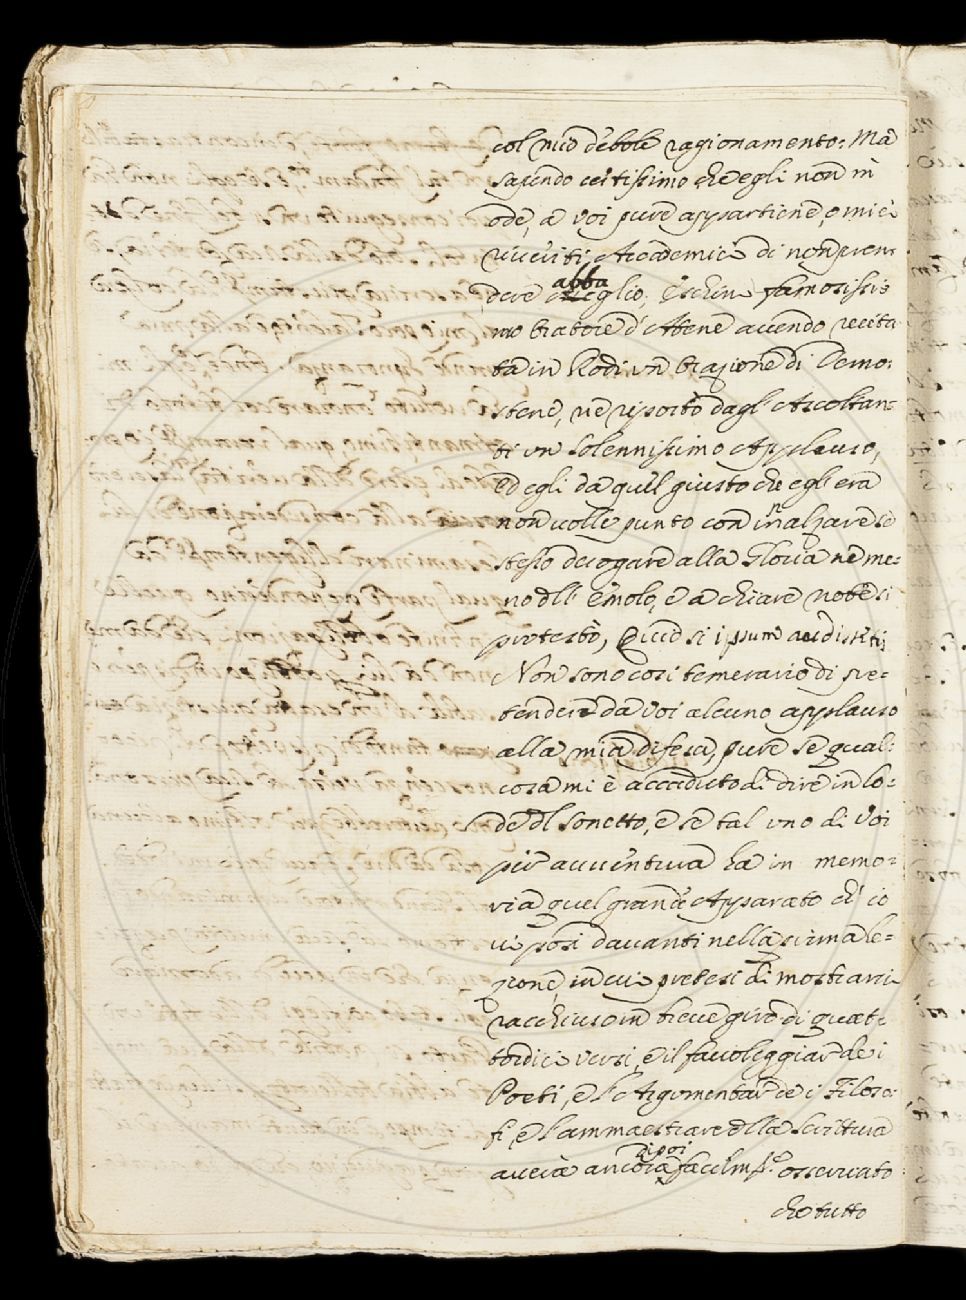 col mio debole ragionamento: Ma
sapendo certissimo che egli non in
ode, a voi pure appartiene, o miei
riveriti Accademici di non pren
dere abbaglio. Eschine famosissi
mo Oratore d'Atene avendo recita
ta in Rodi un Orazione di Demo:
stene, ne riportò dagl'Ascoltan:
ti un solennissimo Applauso,
ed egli da quel giusto che egl'era
non volle punto con innalzare se
stesso derogare alla Gloria ne me:
no dll' emolo, e a chiare note si
protestò, Quid si ipsum audissetis
Non sono così temerario di pre:
tendere da voi alcuno applauso
alla mia difesa, pure se qual:
cosa mi è accaduto di dire in lo:
de dl sonetto, e se tal uno di voi
per avventura ha in memo:
ria quel grande Apparato ch' io
vi posi davanti nella prima le:
zione, in cui pretesi di mostrarvi
racchiuso in breve giro di quat:
tordici versi, e il favoleggiar de i
Poeti, e l'Argomentar de i Filoso:
fi, e l'ammaestrare dlla scrittura
averà ancora dipoi facilm.te osservato
che tutto